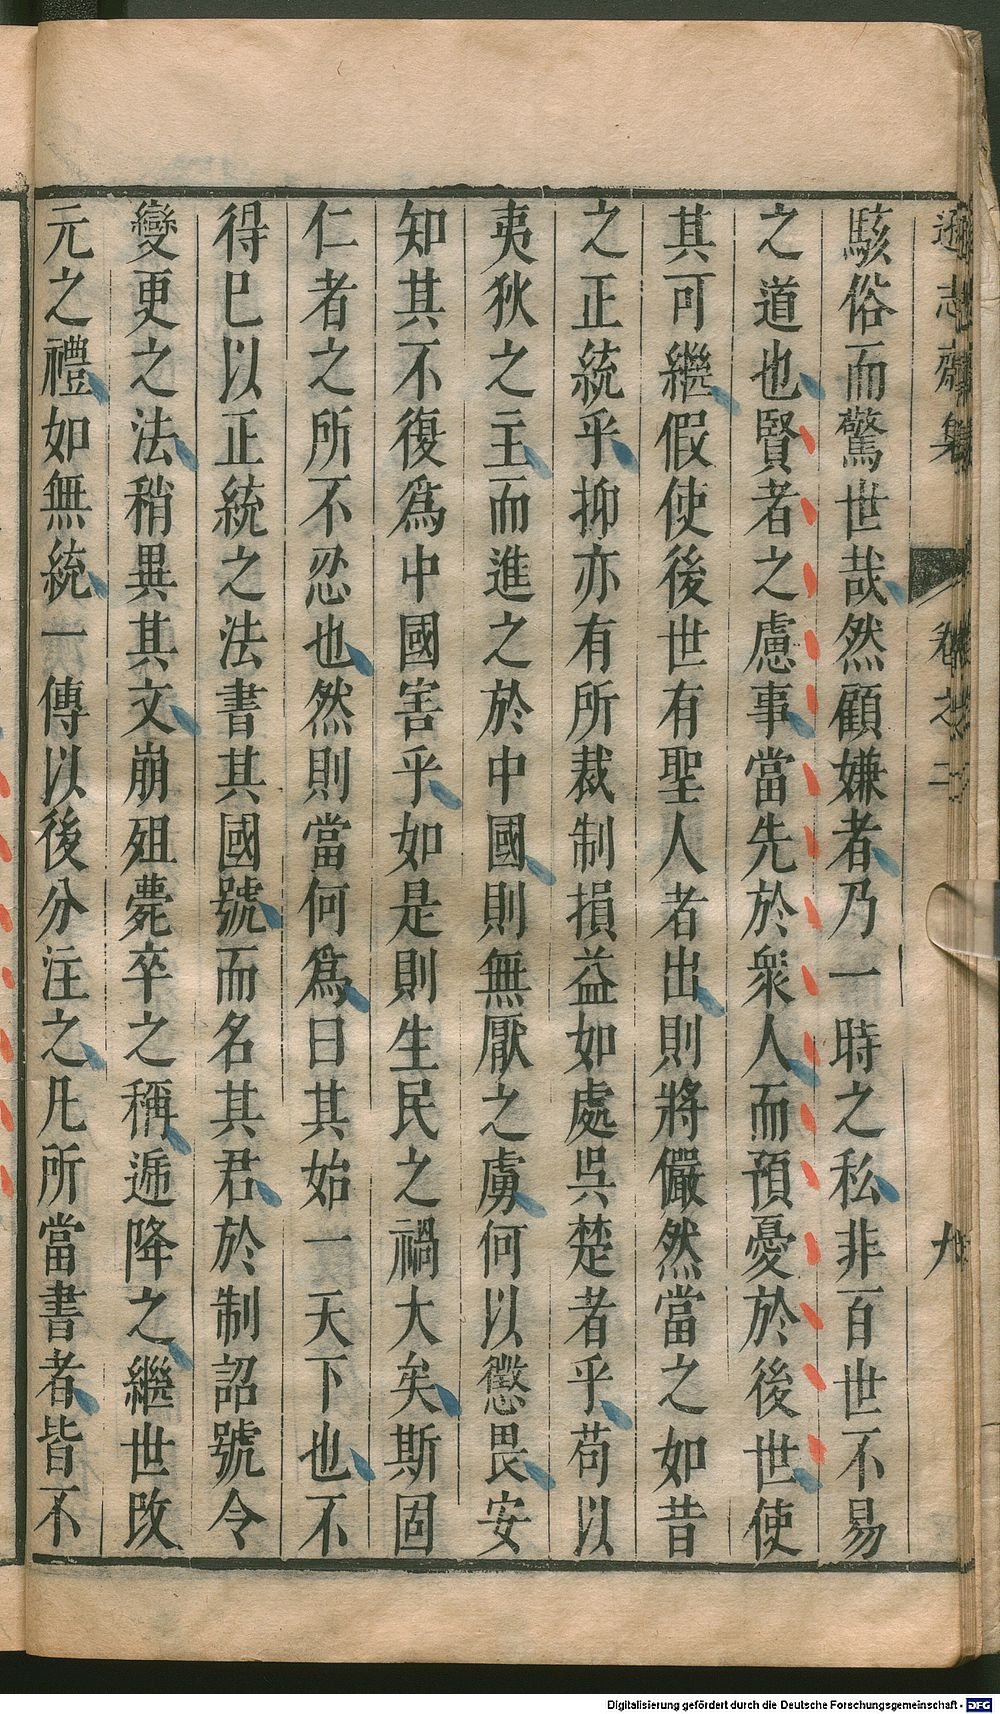 遜志齋集
卷之二
九
駭俗而驚世哉然顧嫌者乃一時之私非百世不易
之道也賢者之慮事當先於衆人而預憂於後世使
其可繼假使後世有聖人者出則將儼然當之如昔
之正統乎抑亦有所裁制損益如處吳楚者乎苟以
夷狄之主而進之於中國則無厭之虜何以懲畏安
知其不復爲中國害乎如是則生民之禍大矣斯固
仁者之所不忍也然則當何爲曰其始一天下也不
得已以正統之法書其國號而名其君於制詔號令
變更之法稍異其文崩殂薨卒之稱遞降之繼世改
元之禮如無統一傳以後分注之凡所當書者皆不
Digitalisierung gefördert durch die Deutsche Forschungsgemeinschaft - DFG